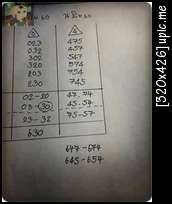 023 475
032 457
302 547
320 574
203 754
230 745
02-20 47-74
03-30 45-54
23-32 75-57
630
647-674
645-654
[520x426] upic.me